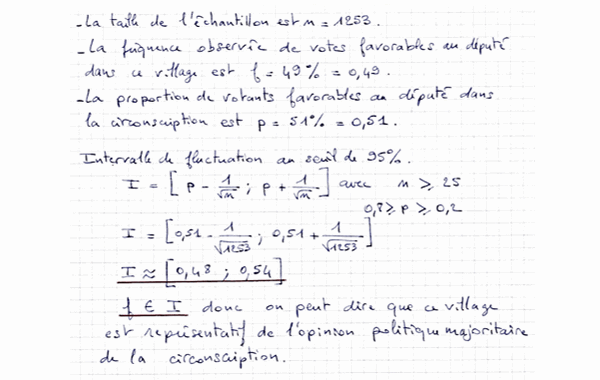 - La taille de l'échantillon est n = 1253.
- La fréquence observée de votes favorables au député
dans ce village est f = 49% = 0,49.
- La proportion de votants favorables au député dans
la circonscription est p = 51% = 0,51.
Intervalle de fluctuation au seuil de 95%.
I = [p - 1/√n ; p + 1/√n] avec n ≥ 25
0,8 ≥ p ≥ 0,2
I = [0,51 - 1/√1253 ; 0,51 + 1/√1253]
I ≈ [0,48 ; 0,54]
f ∈ I donc on peut dire que ce village
est représentatif de l'opinion politique majoritaire
de la circonscription.